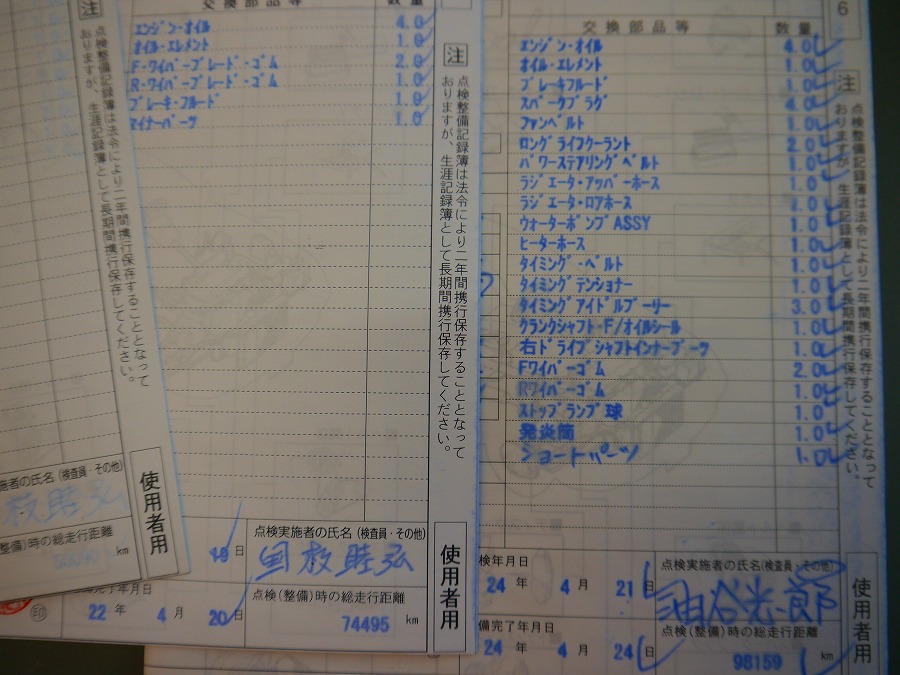 注
点検整備記録簿は法令により二年間携行保存することとなって
おりますが、生涯記録簿として長期間携行保存してください。
施者の氏名(検査員・その他)
整備)時の総走行距離
km
使用者用
交換部品等 数量
エンジン・オイル 4.0
オイル・エレメント 1.0
F・ワイパーブレード・ゴム 2.0
R・ワイパーブレード・ゴム 1.0
ブレーキ・フルード 1.0
マイナーパーツ 1.0
注
点検整備記録簿は法令により二年間携行保存することとなって
おりますが、生涯記録簿として長期間携行保存してください。
19日
点検実施者の氏名(検査員・その他)
完了年月日
印
22年 4月 20日
点検(整備)時の総走行距離
74495 km
使用者用
6
交換部品等 数量
エンジン・オイル 4.0
オイル・エレメント 1.0
ブレーキフルード 1.0
スパークプラグ 4.0
ファンベルト 1.0
ロングライフクーラント 2.0
パワーステアリングベルト 1.0
ラジエータ・アッパーホース 1.0
ラジエータ・ロアホース 1.0
ウォーターポンプASSY 1.0
ヒーターホース 1.0
タイミング・ベルト 1.0
タイミングテンショナー 1.0
タイミングアイドルプーリー 3.0
クランクシャフト・F/オイルシール 1.0
右ドライブシャフトインナーブーツ 1.0
Fワイパーゴム 2.0
Rワイパーゴム 1.0
ストップランプ球 1.0
発炎筒 1.0
ショートパーツ 1.0
注
点検整備記録簿は法令により二年間携行保存することとなって
おりますが、生涯記録簿として長期間携行保存してください。
検年月日
24年 4月 21日
点検実施者の氏名(検査員・その他)
備完了年月日
24年 4月 24日
点検(整備)時の総走行距離
98159 km
使用者用